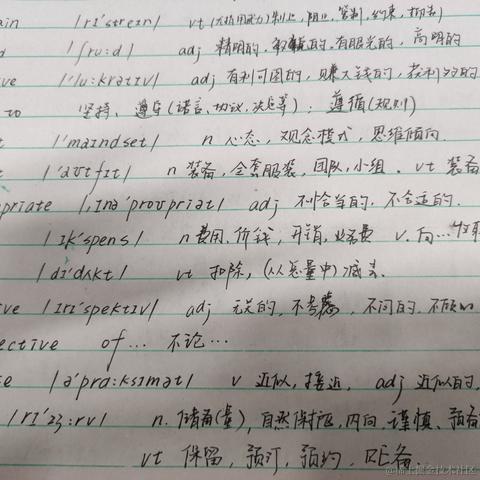 ain /rɪ'streɪn/ vt (尤指用武力)制止,阻止,管制,约束,抑制
d /ʃru:d/ adj 精明的,敏锐的,有眼光的,高明的
ve /'lu:krətɪv/ adj 有利可图的,赚大钱的,获利多的
to 坚持、遵守(诺言、协议,决定等);遵循(规则)
t /'maɪndset/ n 心态,观念模式,思维倾向
t /'aʊtfɪt/ n 装备,全套服装,团队,小组. vt 装备
priate /,ɪnə'prəʊpriət/ adj 不恰当的,不合适的.
/ɪk'spens/ n 费用,价钱,开销,业务费 v. 向…
/dɪ'dʌkt/ vt 扣除,(从总量中)减去.
ve /ɪrɪ'spektɪv/ adj 无关的,不考虑,不问的,不顾的
ective of… 不论…
e /ə'prɑ:ksɪmət/ v 近似,接近, adj 近似的,
/rɪ'zɜ:rv/ n. 储备(量),自然保护区,内向,谨慎、预备
vt 保留,预订,预约,
@稀土掘金技术社区